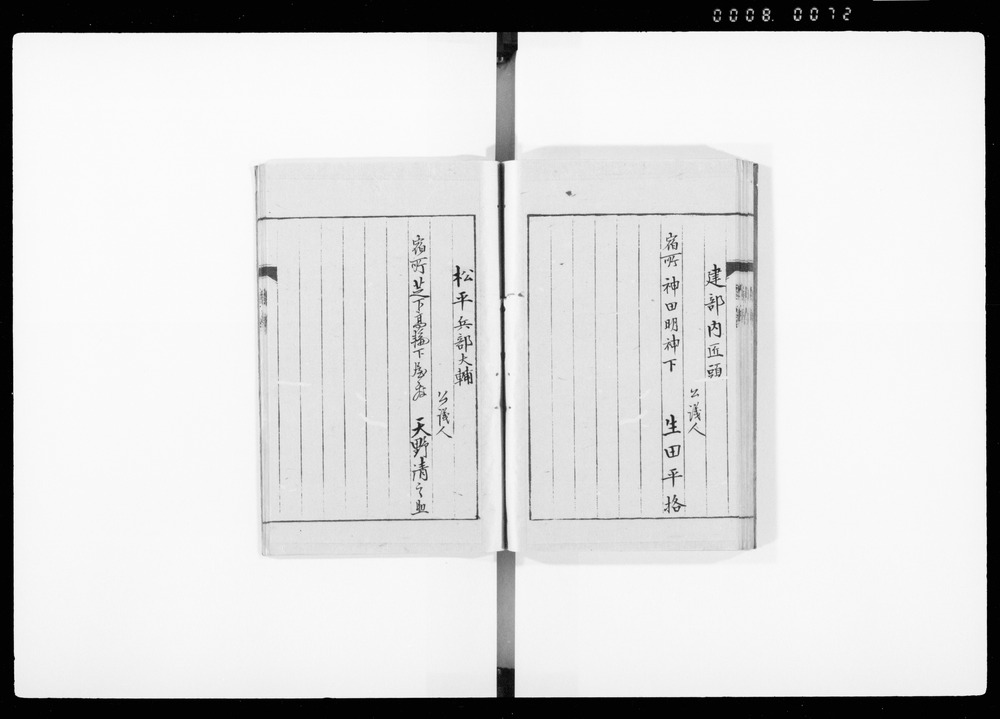 0008. 0072
建部内匠頭
公議人
宿所 神田明神下 生田平格
松平兵部大輔
公議人
宿所 芝下高輪下屋敷 天野清之助